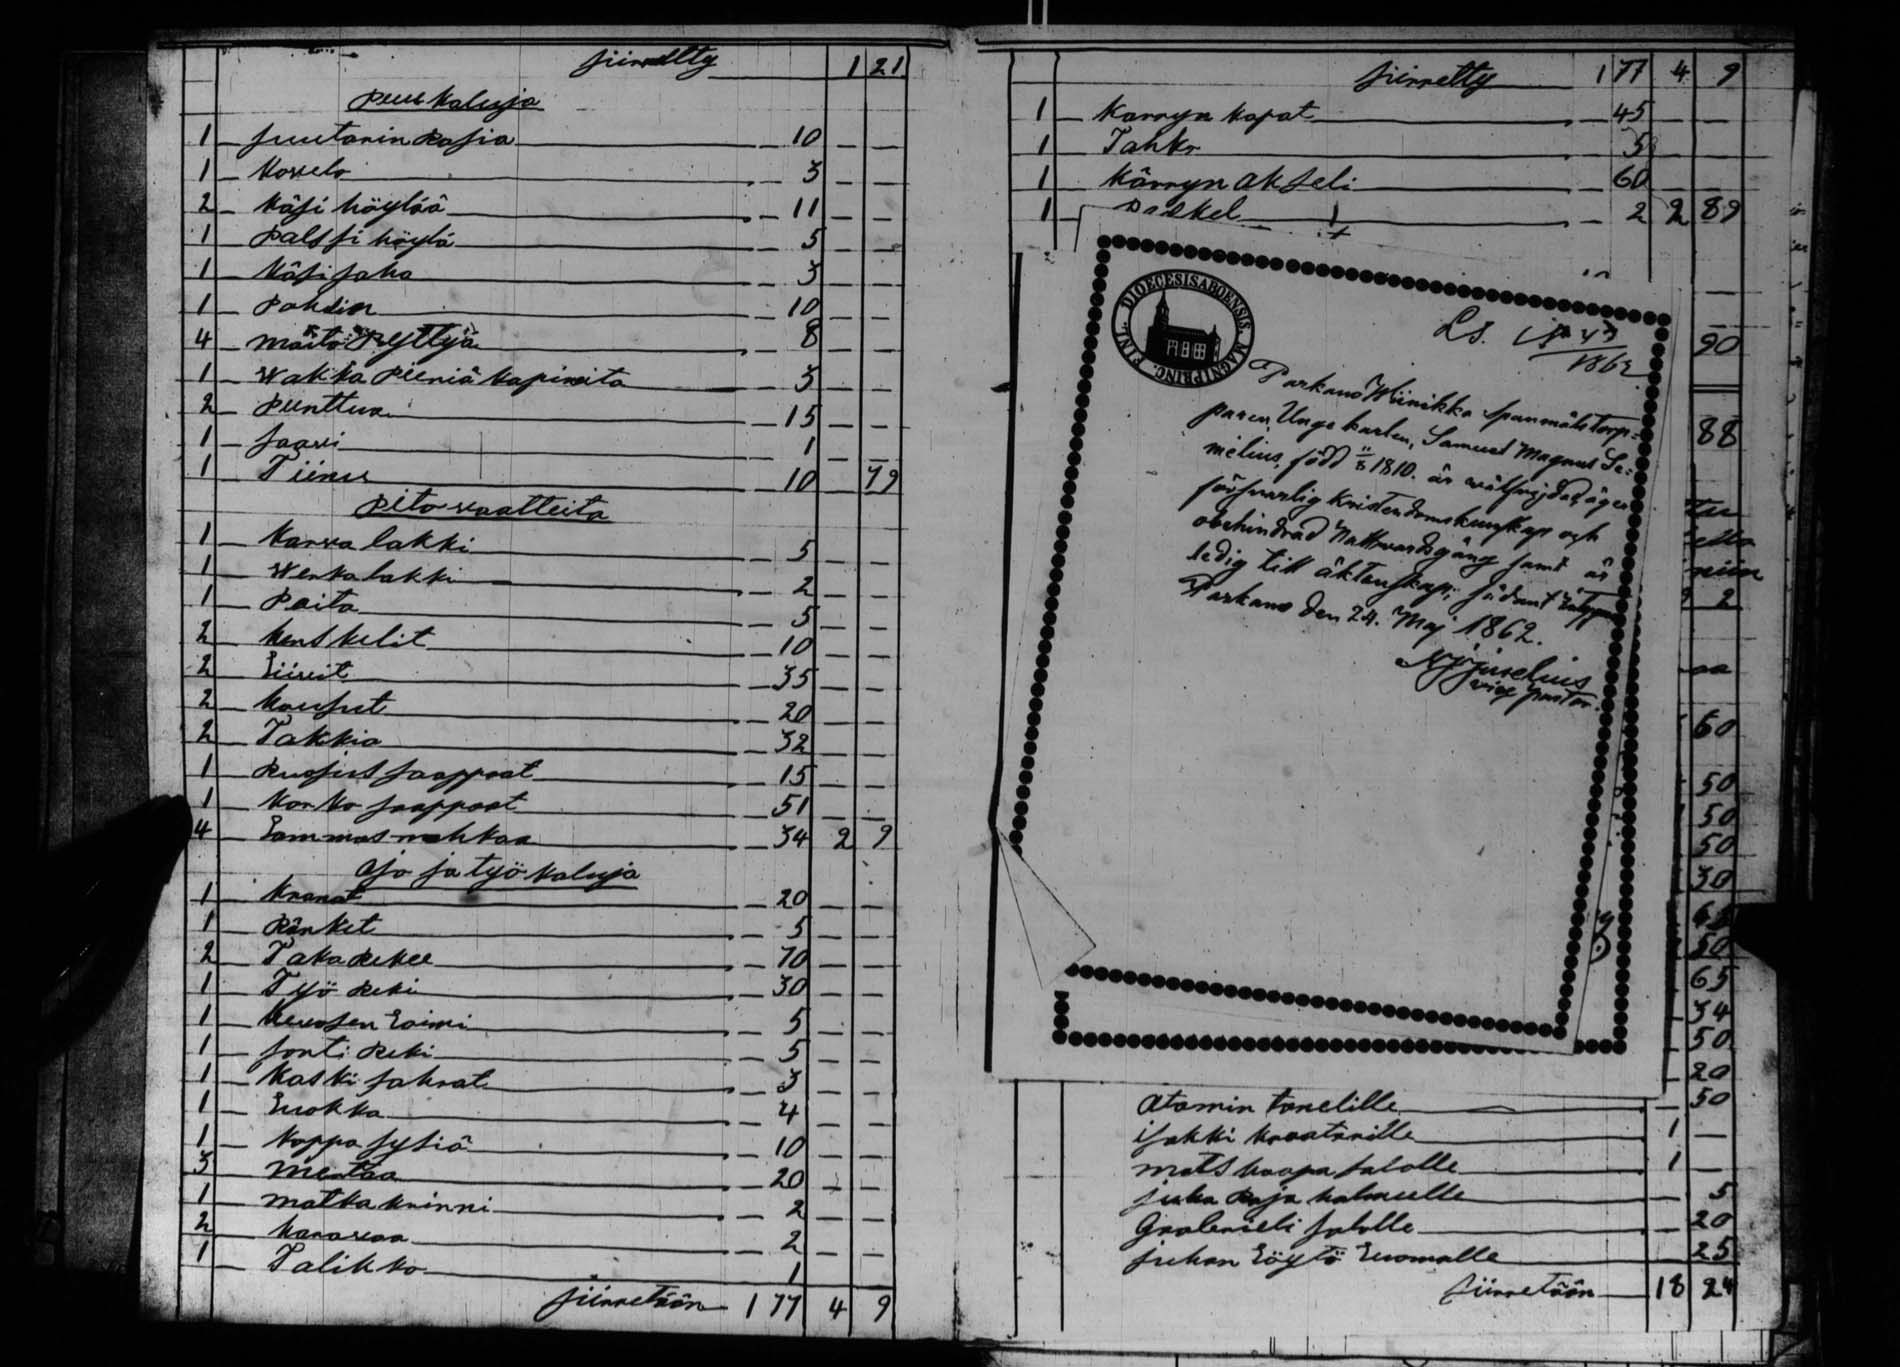 siirretty 1 21
Puu Kaluja
1 suutarin Rasia 10
1 Kovelo 3
2 Käsi höylää 11
1 Palssi höylä 5
1 Käsi saha 3
1 Pohdin 10
4 maito Pyttyä 8
1 Wakka Pieniä Kapineita 3
2 Punttua 15
1 saavi 1
1 Tiinu 10 79
Pito vaatteita
1 Karva lakki 5
1 Werka lakki 2
1 Paita 5
2 henskelit 10
2 Liivit 35
2 housut 20
2 Takkia 32
1 Ruojus saappaat 15
1 Korko saappaat 51
4 Lammas nahkaa 34 2 9
ajo ja työ kaluja
1 kranat 20
1 Ränket 5
2 Taka Rekee 70
1 Työ Reki 30
1 hevosen Loimi 5
1 sonti Reki 5
1 Kaski sahrat 3
1 Luokka 4
1 Koppa sysiä 10
3 20
1 matka krinni 2
2 2
1 Talikko 1
siirretään 1 77 4 9
siirretty 1 77 4 9
1 Karryn kapat 45
1 Tahko 5
1 Kärryn akseli 60
1 2 2 89
DIOECESIS ABOENSIS. MAGNI PRINC. FINL.
L.S.
1862
90
Parkano Wiinikka spanmålstorp-
paren, Unge karlen, Samuel Magnus Se-
88
melius, född 1810. är välfrejdad, äger
försvarlig kristendomskunskap och
obehindrad Nattvardsgång samt är
ledig till äktenskap; sådant
niin
Parkano den 24. Maj 1862.
2
vice pastor.
60
50
50
50
30
50
65
34
50
20
Atamin tanelille 50
isakki kraatarille 1
mats haapa salolle 1
juha Raja kalmeelle 5
salolle 20
juhan Löytö Luomalle 25
siirretään 18 24